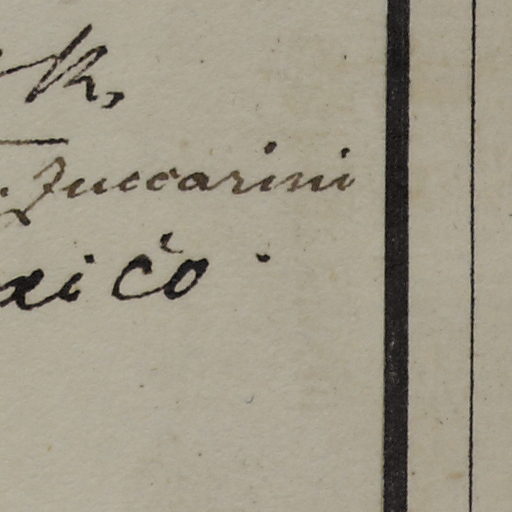 k,
. Zuccarini
xico.